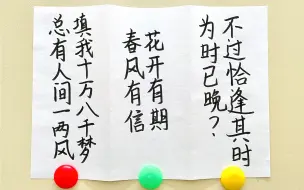 总有人间一两风
填我十万八千梦
春风有信
花开有期
为时已晚？
不过恰逢其时